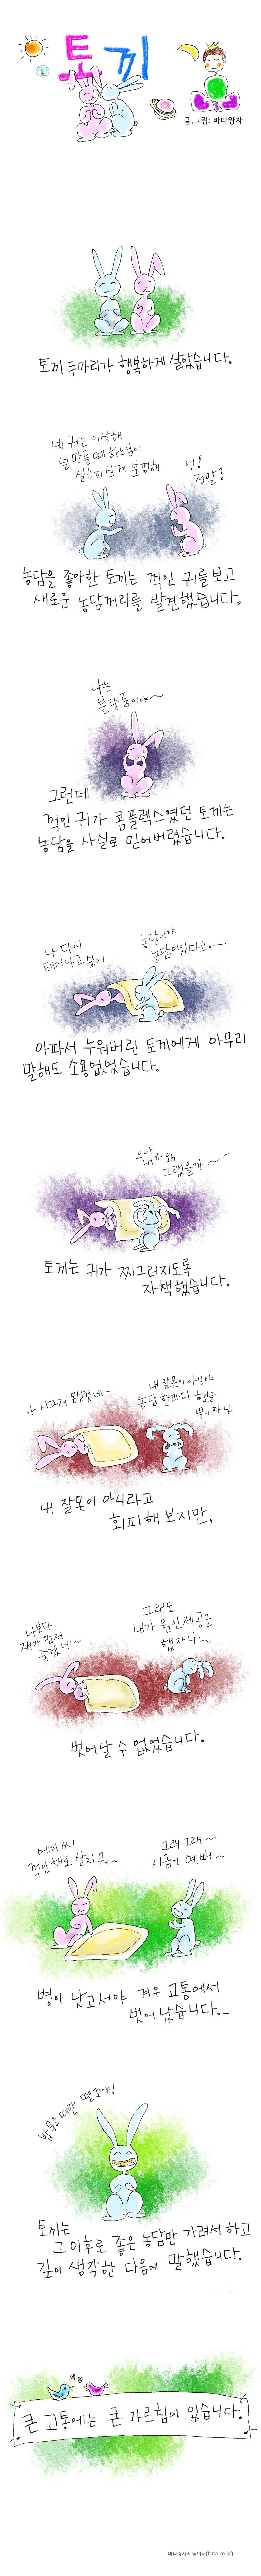 토끼
글,그림: 바타왕자
토끼 두마리가 행복하게 살았습니다.
네 귀는 이상해
널 만들 때 하느님이
실수하신게 분명해
엉!
정말?
농담을 좋아한 토끼는 꺽인 귀를 보고
새로운 농담꺼리를 발견했습니다.
나는
불량품이야~
그런데
꺽인귀가 콤플렉스였던 토끼는
농담을 사실로 믿어버렸습니다.
나 다시
태어나고 싶어
농담이야
농담이었다고~
아파서 누워버린 토끼에게 아무리
말해도 소용없었습니다.
으아
내가 왜
그랬을까~
토끼는 귀가 찌그러지도록
자책했습니다.
아 시끄러 못살겠네~
내 잘못이 아니야
농담 한마디 했을
뿐이자나
내 잘못이 아니라고
회피해 보지만,
나보다
쟤가 먼저
죽겠네~
그래도
내가 원인제공을
했자나~
벗어날 수 없었습니다.
에이씨
꺽인채로 살지 뭐~
그래 그래~
지금이 예뻐~
병이 낫고서야 겨우 고통에서
벗어 났습니다..
밥 먹을 때만 뗄꼬야!
토끼는
그 이후로 좋은 농담만 가려서 하고
깊이 생각한 다음에 말했습니다.
큰 고통에는 큰 가르침이 있습니다.
바타왕자의 놀이터(bata.co.kr)